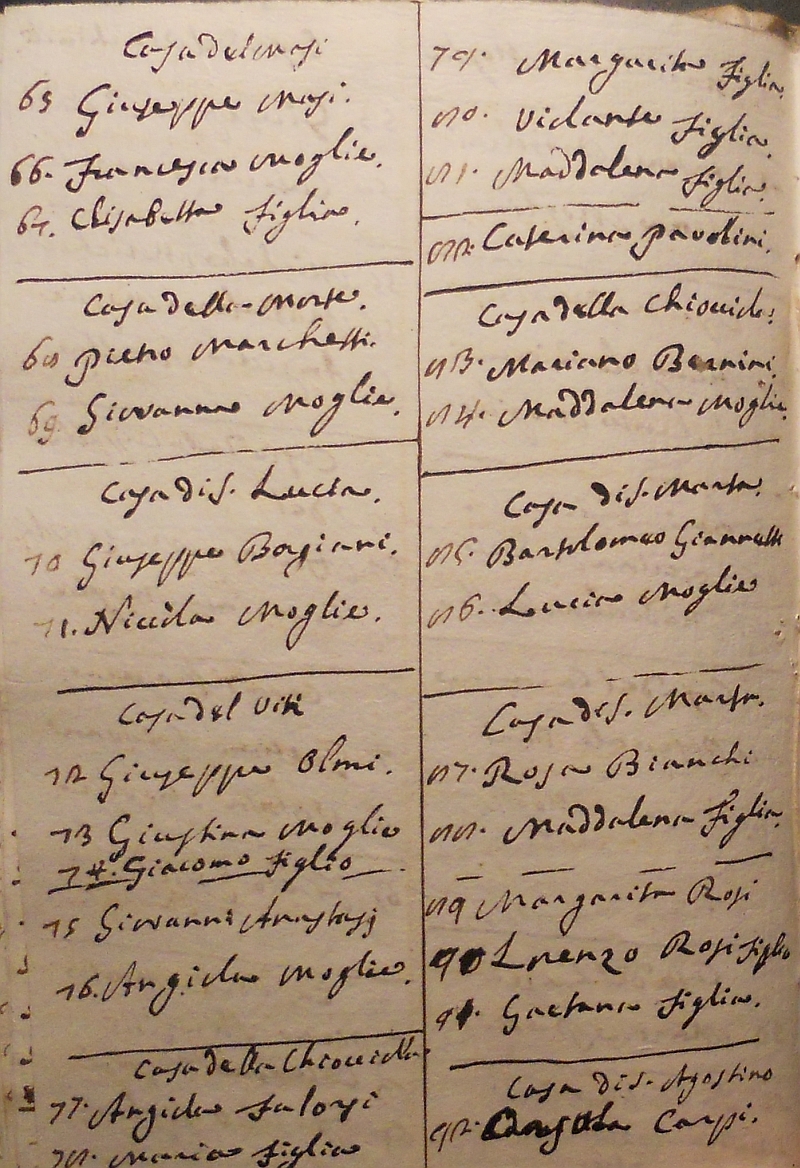 Casa del Masi
65 Giuseppe Masi.
66. Francesca Moglie.
67. Elisabetta figlia.
Casa della Morte.
68 Pietro Marchetti.
69. Giovanna Moglie.
Casa di S. Lucia.
70 Giuseppe Borgiani.
71. Niccola Moglie.
Casa del Viti
72 Giuseppe Olmi.
73 Giustina Moglie
74. Giacomo figlio
75 Giovanni Anastasj
76. Angiola Moglie.
Casa della Chiouiolla
77. Angiola
78. Maria figlia
79. Margarita figlia.
80. Violante figlia.
81. Maddalena figlia.
82. Caterina Pavolini.
Casa della
83. Mariano Bernini.
84. Maddalena Moglie.
Casa di S. Marta.
85. Bartolomeo Giannetti
86. Lucia Moglie
Casa di S. Marta.
87. Rosa Bianchi
88. Maddalena figlia.
89 Margarita Rosi
90 Lorenzo Rosi figlio
91. Gaetana figlia.
Casa di S. Agostino
92. Angola Carpi.